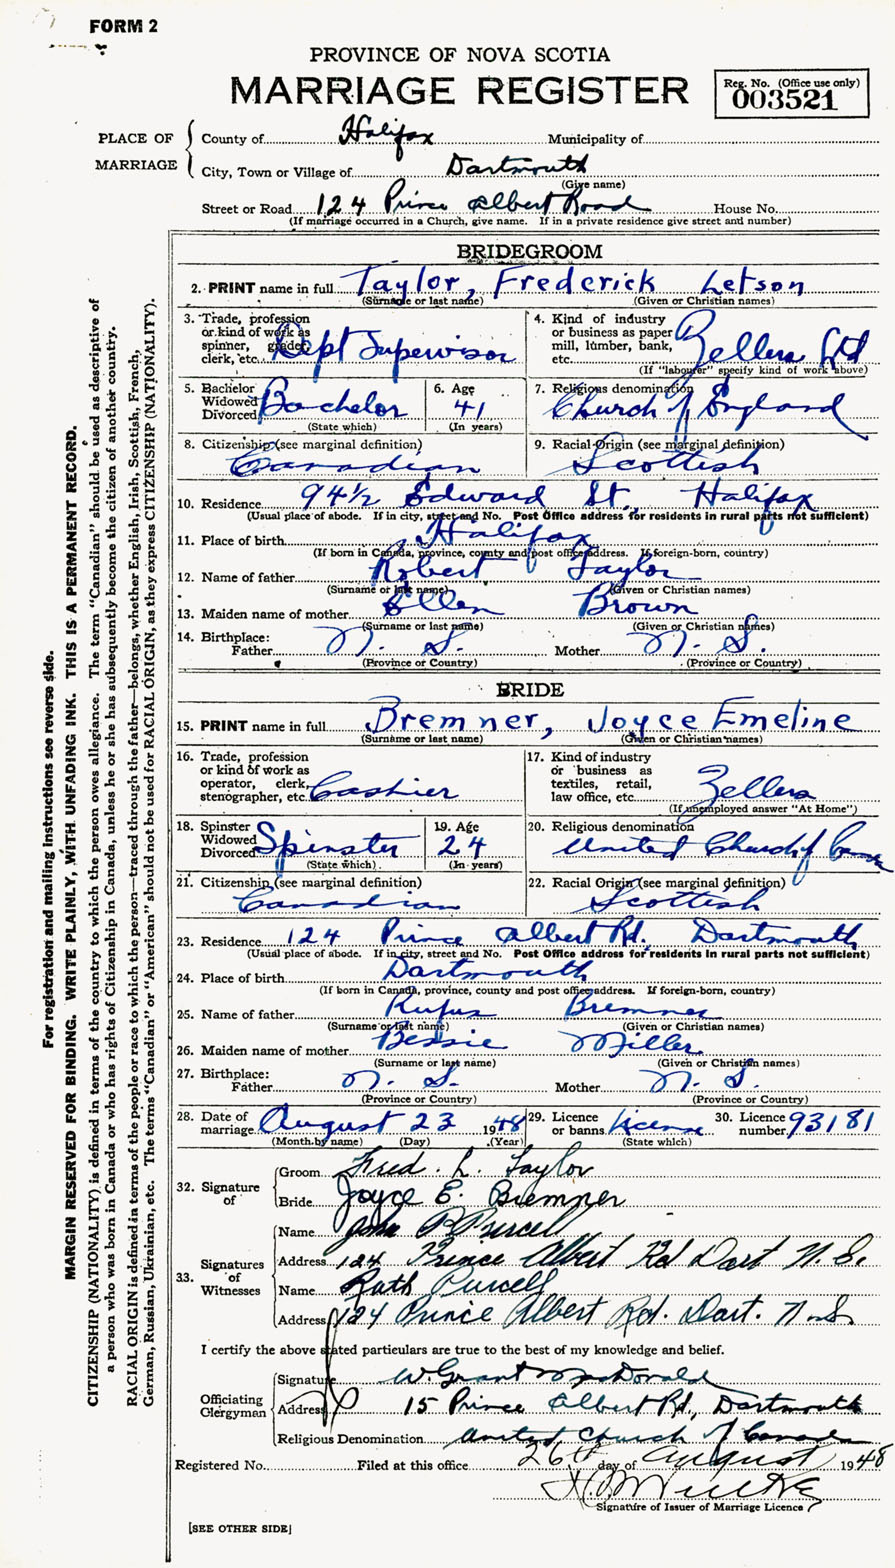 FORM 2
PROVINCE OF NOVA SCOTIA
MARRIAGE REGISTER
Reg. No. (Office use only)
003521
PLACE OF MARRIAGE
County of Halifax Municipality of
City, Town or Village of Dartmouth
(Give name)
Street or Road 124 Prince Albert Road House No.
(If marriage occurred in a Church, give name. If in a private residence give street and number)
BRIDEGROOM
2. PRINT name in full Taylor, Frederick Letson
(Surname or last name) (Given or Christian names)
3. Trade, profession or kind of work as spinner, grader, clerk, etc. Dept Supervisor
4. Kind of industry or business as paper mill, lumber, bank, etc. Zellers Ltd
(If "labourer" specify kind of work above)
5. Bachelor Widowed Divorced Bachelor
(State which)
6. Age 41
(In years)
7. Religious denomination Church of England
8. Citizenship (see marginal definition) Canadian
9. Racial Origin (see marginal definition) Scottish
10. Residence 94½ Edward St, Halifax
(Usual place of abode. If in city, street and No. Post Office address for residents in rural parts not sufficient)
11. Place of birth Halifax
(If born in Canada, province, county and post office address. If foreign-born, country)
12. Name of father Robert Taylor
(Surname or last name) (Given or Christian names)
13. Maiden name of mother Ellen Brown
(Surname or last name) (Given or Christian names)
14. Birthplace:
Father N. S. Mother N. S.
(Province or Country) (Province or Country)
BRIDE
15. PRINT name in full Bremner, Joyce Emeline
(Surname or last name) (Given or Christian names)
16. Trade, profession or kind of work as operator, clerk, stenographer, etc. Cashier
17. Kind of industry or business as textiles, retail, law office, etc. Zellers
(If unemployed answer "At Home")
18. Spinster Widowed Divorced Spinster
(State which)
19. Age 24
(In years)
20. Religious denomination United Church of
21. Citizenship (see marginal definition) Canadian
22. Racial Origin (see marginal definition) Scottish
23. Residence 124 Prince Albert Rd. Dartmouth
(Usual place of abode. If in city, street and No. Post Office address for residents in rural parts not sufficient)
24. Place of birth Dartmouth
(If born in Canada, province, county and post office address. If foreign-born, country)
25. Name of father Rufus Bremner
(Surname or last name) (Given or Christian names)
26. Maiden name of mother Bessie Miller
(Surname or last name) (Given or Christian names)
27. Birthplace:
Father N. S. Mother N. S.
(Province or Country) (Province or Country)
28. Date of marriage August 23 1948
(Month by name) (Day) (Year)
29. Licence or banns License
(State which)
30. Licence number 93181
32. Signature of
Groom Fred. L. Taylor
Bride Joyce E. Bremner
33. Signatures of Witnesses
Name John P Purcell
Address 124 Prince Albert Rd Dart N. S.
Name Ruth Purcell
Address 124 Prince Albert Rd. Dart. N.S.
I certify the above stated particulars are true to the best of my knowledge and belief.
Officiating Clergyman
Signature W. Grant MacDonald
Address 15 Prince Albert Rd, Dartmouth
Religious Denomination United Church of Canada
Registered No. Filed at this office 26th day of August 1948
Signature of Issuer of Marriage Licence
[SEE OTHER SIDE]
For registration and mailing instructions see reverse side.
MARGIN RESERVED FOR BINDING. WRITE PLAINLY, WITH UNFADING INK. THIS IS A PERMANENT RECORD.
CITIZENSHIP (NATIONALITY) is defined in terms of the country to which the person owes allegiance. The term "Canadian" should be used as descriptive of
a person who was born in Canada or who has rights of Citizenship in Canada, unless he or she has subsequently become the citizen of another country.
RACIAL ORIGIN is defined in terms of the people or race to which the person—traced through the father—belongs, whether English, Irish, Scottish, French,
German, Russian, Ukrainian, etc. The terms "Canadian" or "American" should not be used for RACIAL ORIGIN, as they express CITIZENSHIP (NATIONALITY).